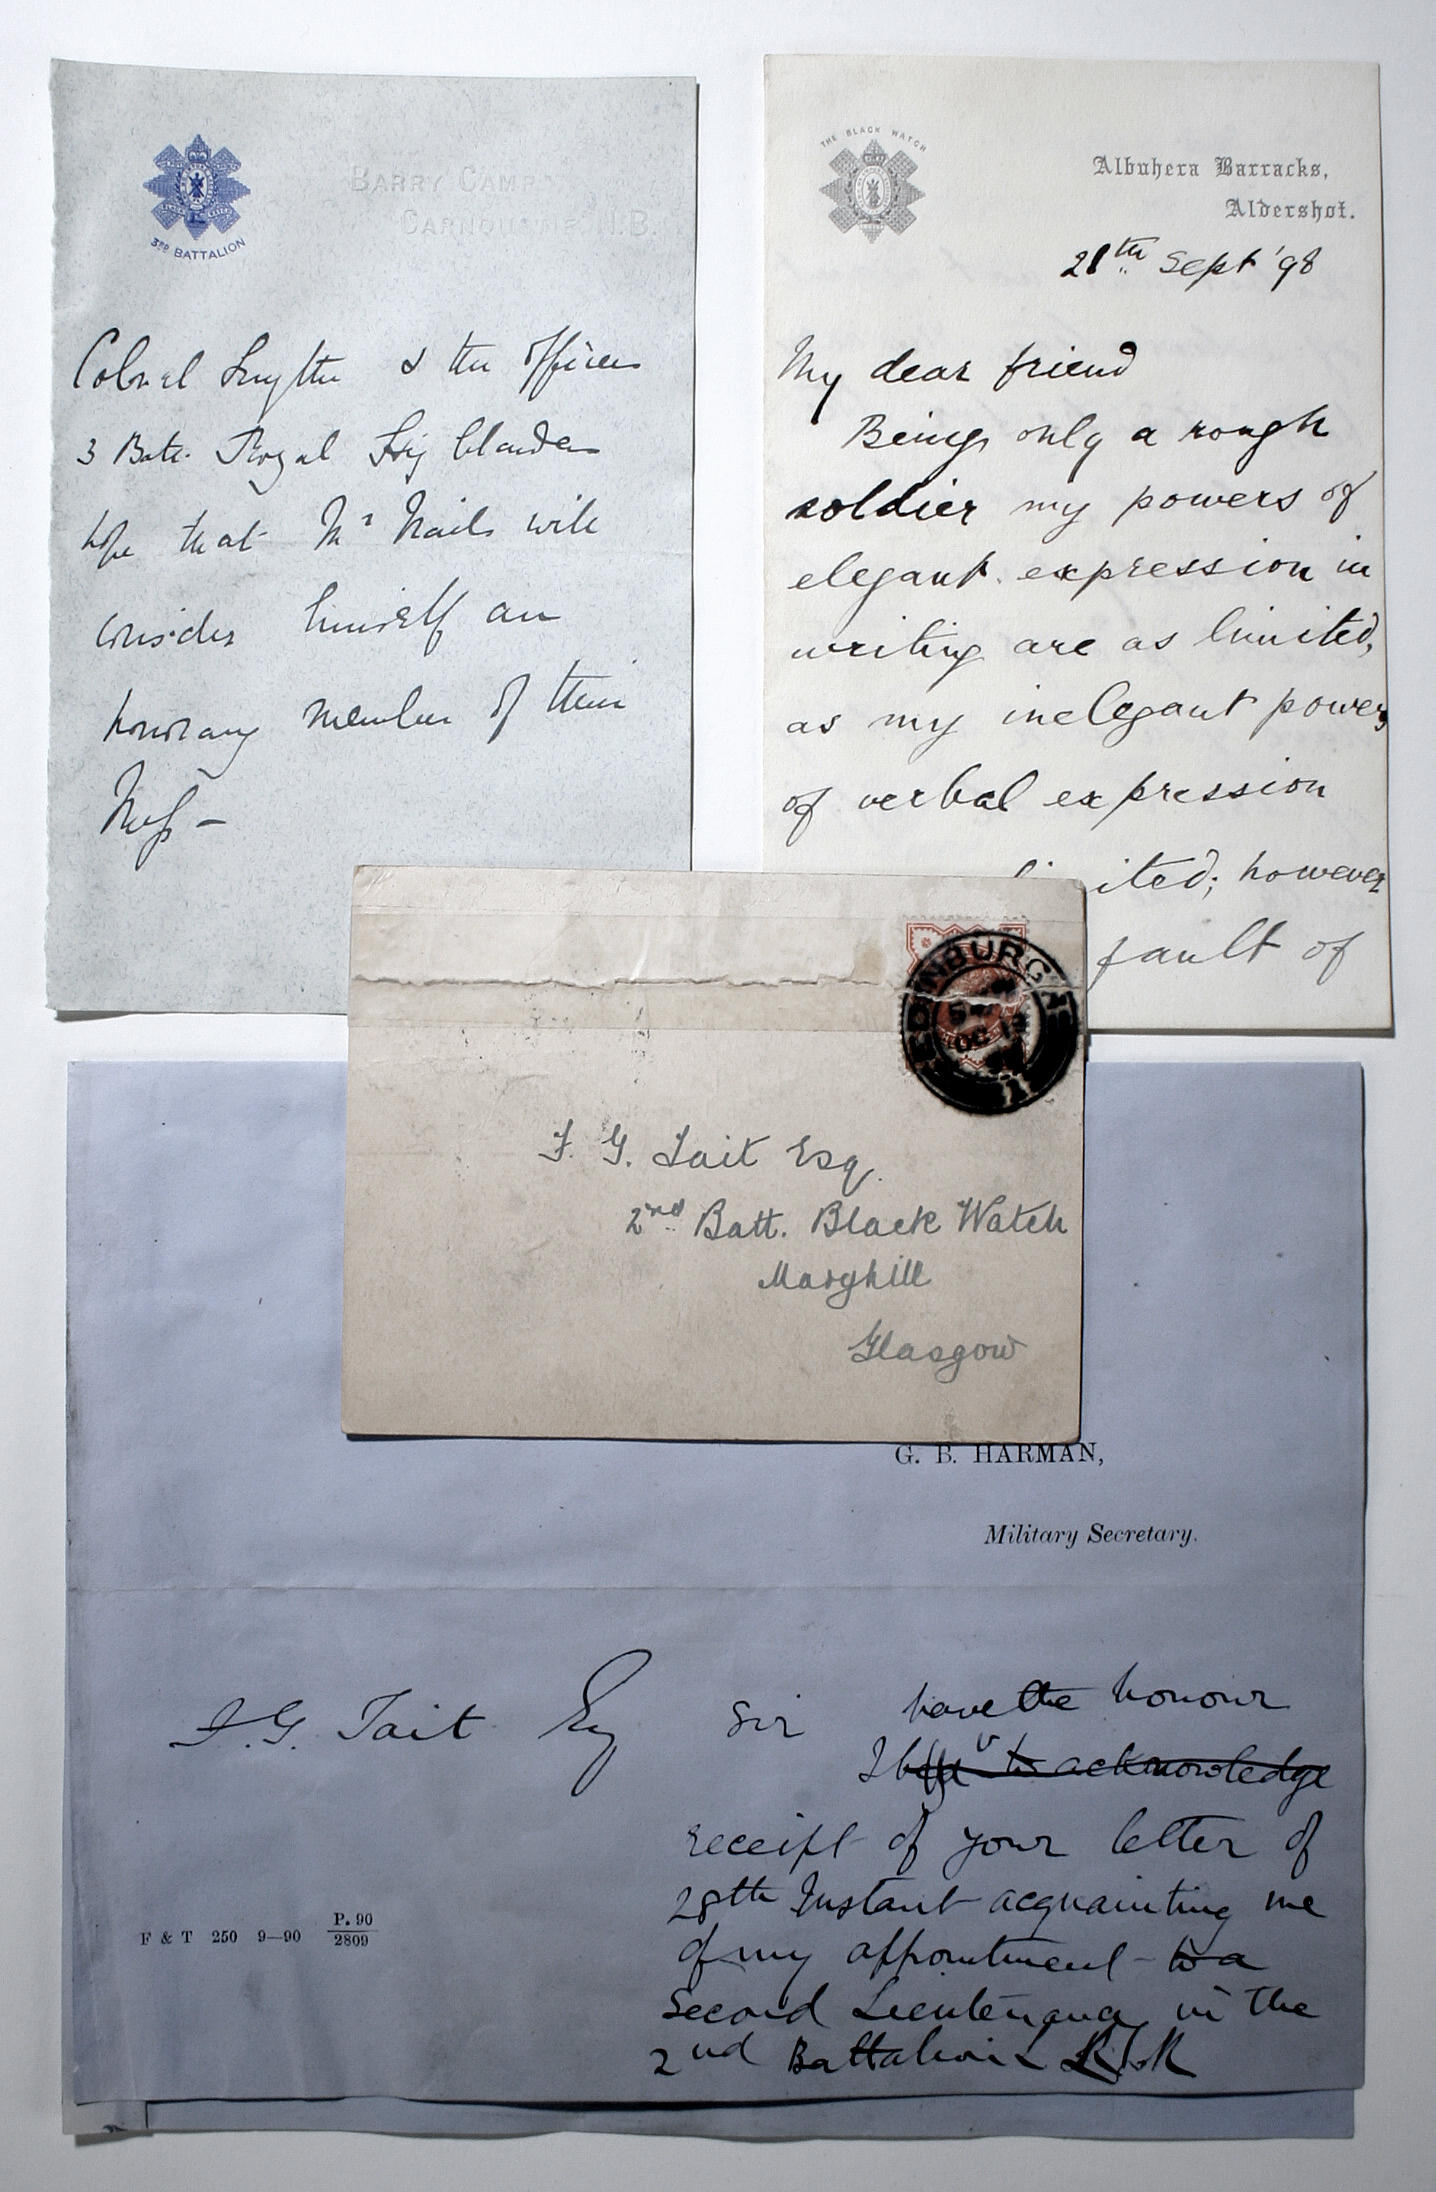 3RD BATTALION
BARRY CAMP
CARNOUSTIE, N.B.
Colonel Smythe & the Officers
3 Batt. Royal Highlanders
hope that Mr Nails will
consider himself an
honorary member of their
Mess -
THE BLACK WATCH
Albuhera Barracks,
Aldershot.
21th Sept '98
My dear friend
Being only a rough
soldier my powers of
elegant expression in
writing are as limited,
as my inelegant powers
of verbal expression
ited; however
fault of
EDINBURGH
F. G. Tait Esq.
2nd Batt. Black Watch
Maryhill
Glasgow
G. B. HARMAN,
Military Secretary.
F. G. Tait Esq
Sir
have the honour
I to acknowledge
receipt of your letter of
28th Instant acquainting me
of my appointment to a
Second Lieutenancy in the
2nd Battalion
F & T 250 9—90 P. 90
2809